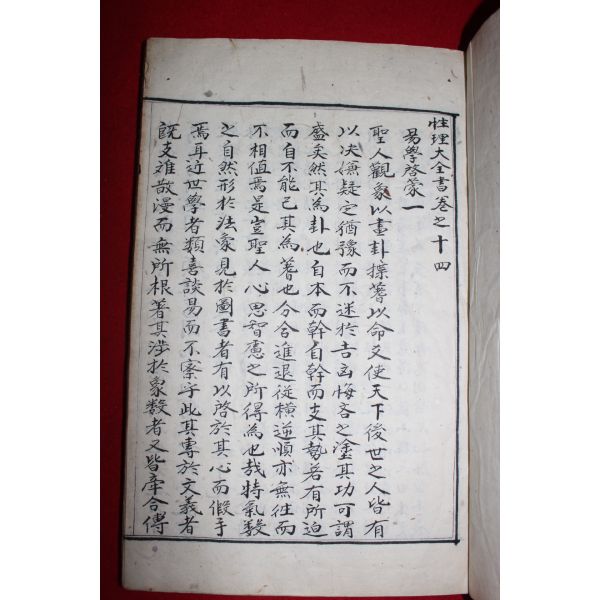 性理大全書卷之十四
易學啓蒙一
聖人觀象以畫卦揲蓍以命爻使天下後世之人皆有
以决嫌疑定猶豫而不迷於吉凶悔吝之塗其功可謂
盛矣然其為卦也自本而幹自幹而支其勢若有所迫
而自不能已其為蓍也分合進退從橫逆順亦無往而
不相值焉是豈聖人心思智慮之所得為也哉特氣數
之自然形於法象見於圖書者有以啓於其心而假手
焉耳近世學者類喜談易而不察乎此其專於文義者
旣支離散漫而無所根著其涉於象數者又皆牽合傅